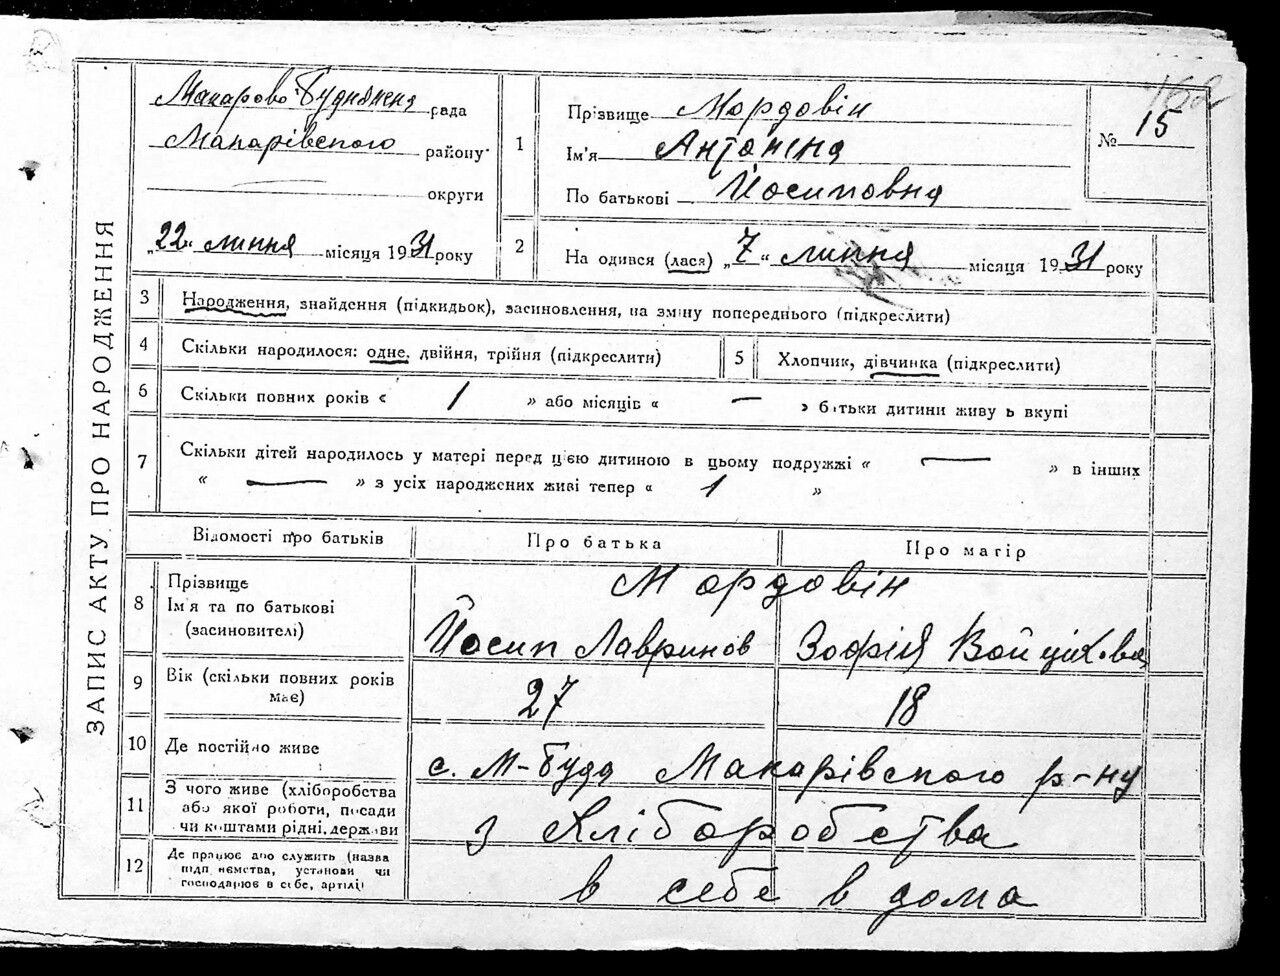 162
ЗАПИС АКТУ ПРО НАРОДЖЕННЯ
Макарово-Будянська рада
Макарівського району
округи
„22“ липня місяця 1931 року
1
Прізвище Мордовін
Ім'я Антоніна
По батькові Йосиповна
№ 15
2
На одився (лася) „7“ липня місяця 1931 року
3 Народження, знайдення (підкидьок), засиновлення, на зміну попереднього (підкреслити)
4 Скільки народилося: одне, двійня, трійня (підкреслити)
5 Хлопчик, дівчинка (підкреслити)
6 Скільки повних років « 1 » або місяців « — » батьки дитини живуть вкупі
7 Скільки дітей народилось у матері перед цією дитиною в цьому подружжі « — » в інших
« — » з усіх народжених живі тепер « 1 »
Відомості про батьків Про батька Про матір
8 Прізвище
Ім'я та по батькові
(засиновителі)
Мордовін
Йосип Лавринов Зофія Войцікова
9 Вік (скільки повних років має) 27 18
10 Де постійно живе с. М-Буда Макарівського р-ну
11 З чого живе (хліборобства
або якої роботи, посади
чи коштами рідні, держави
з хліборобства
12 Де працює або служить (назва
підп иємства, установи чи
господарює в себе, артілі)
в себе в дома